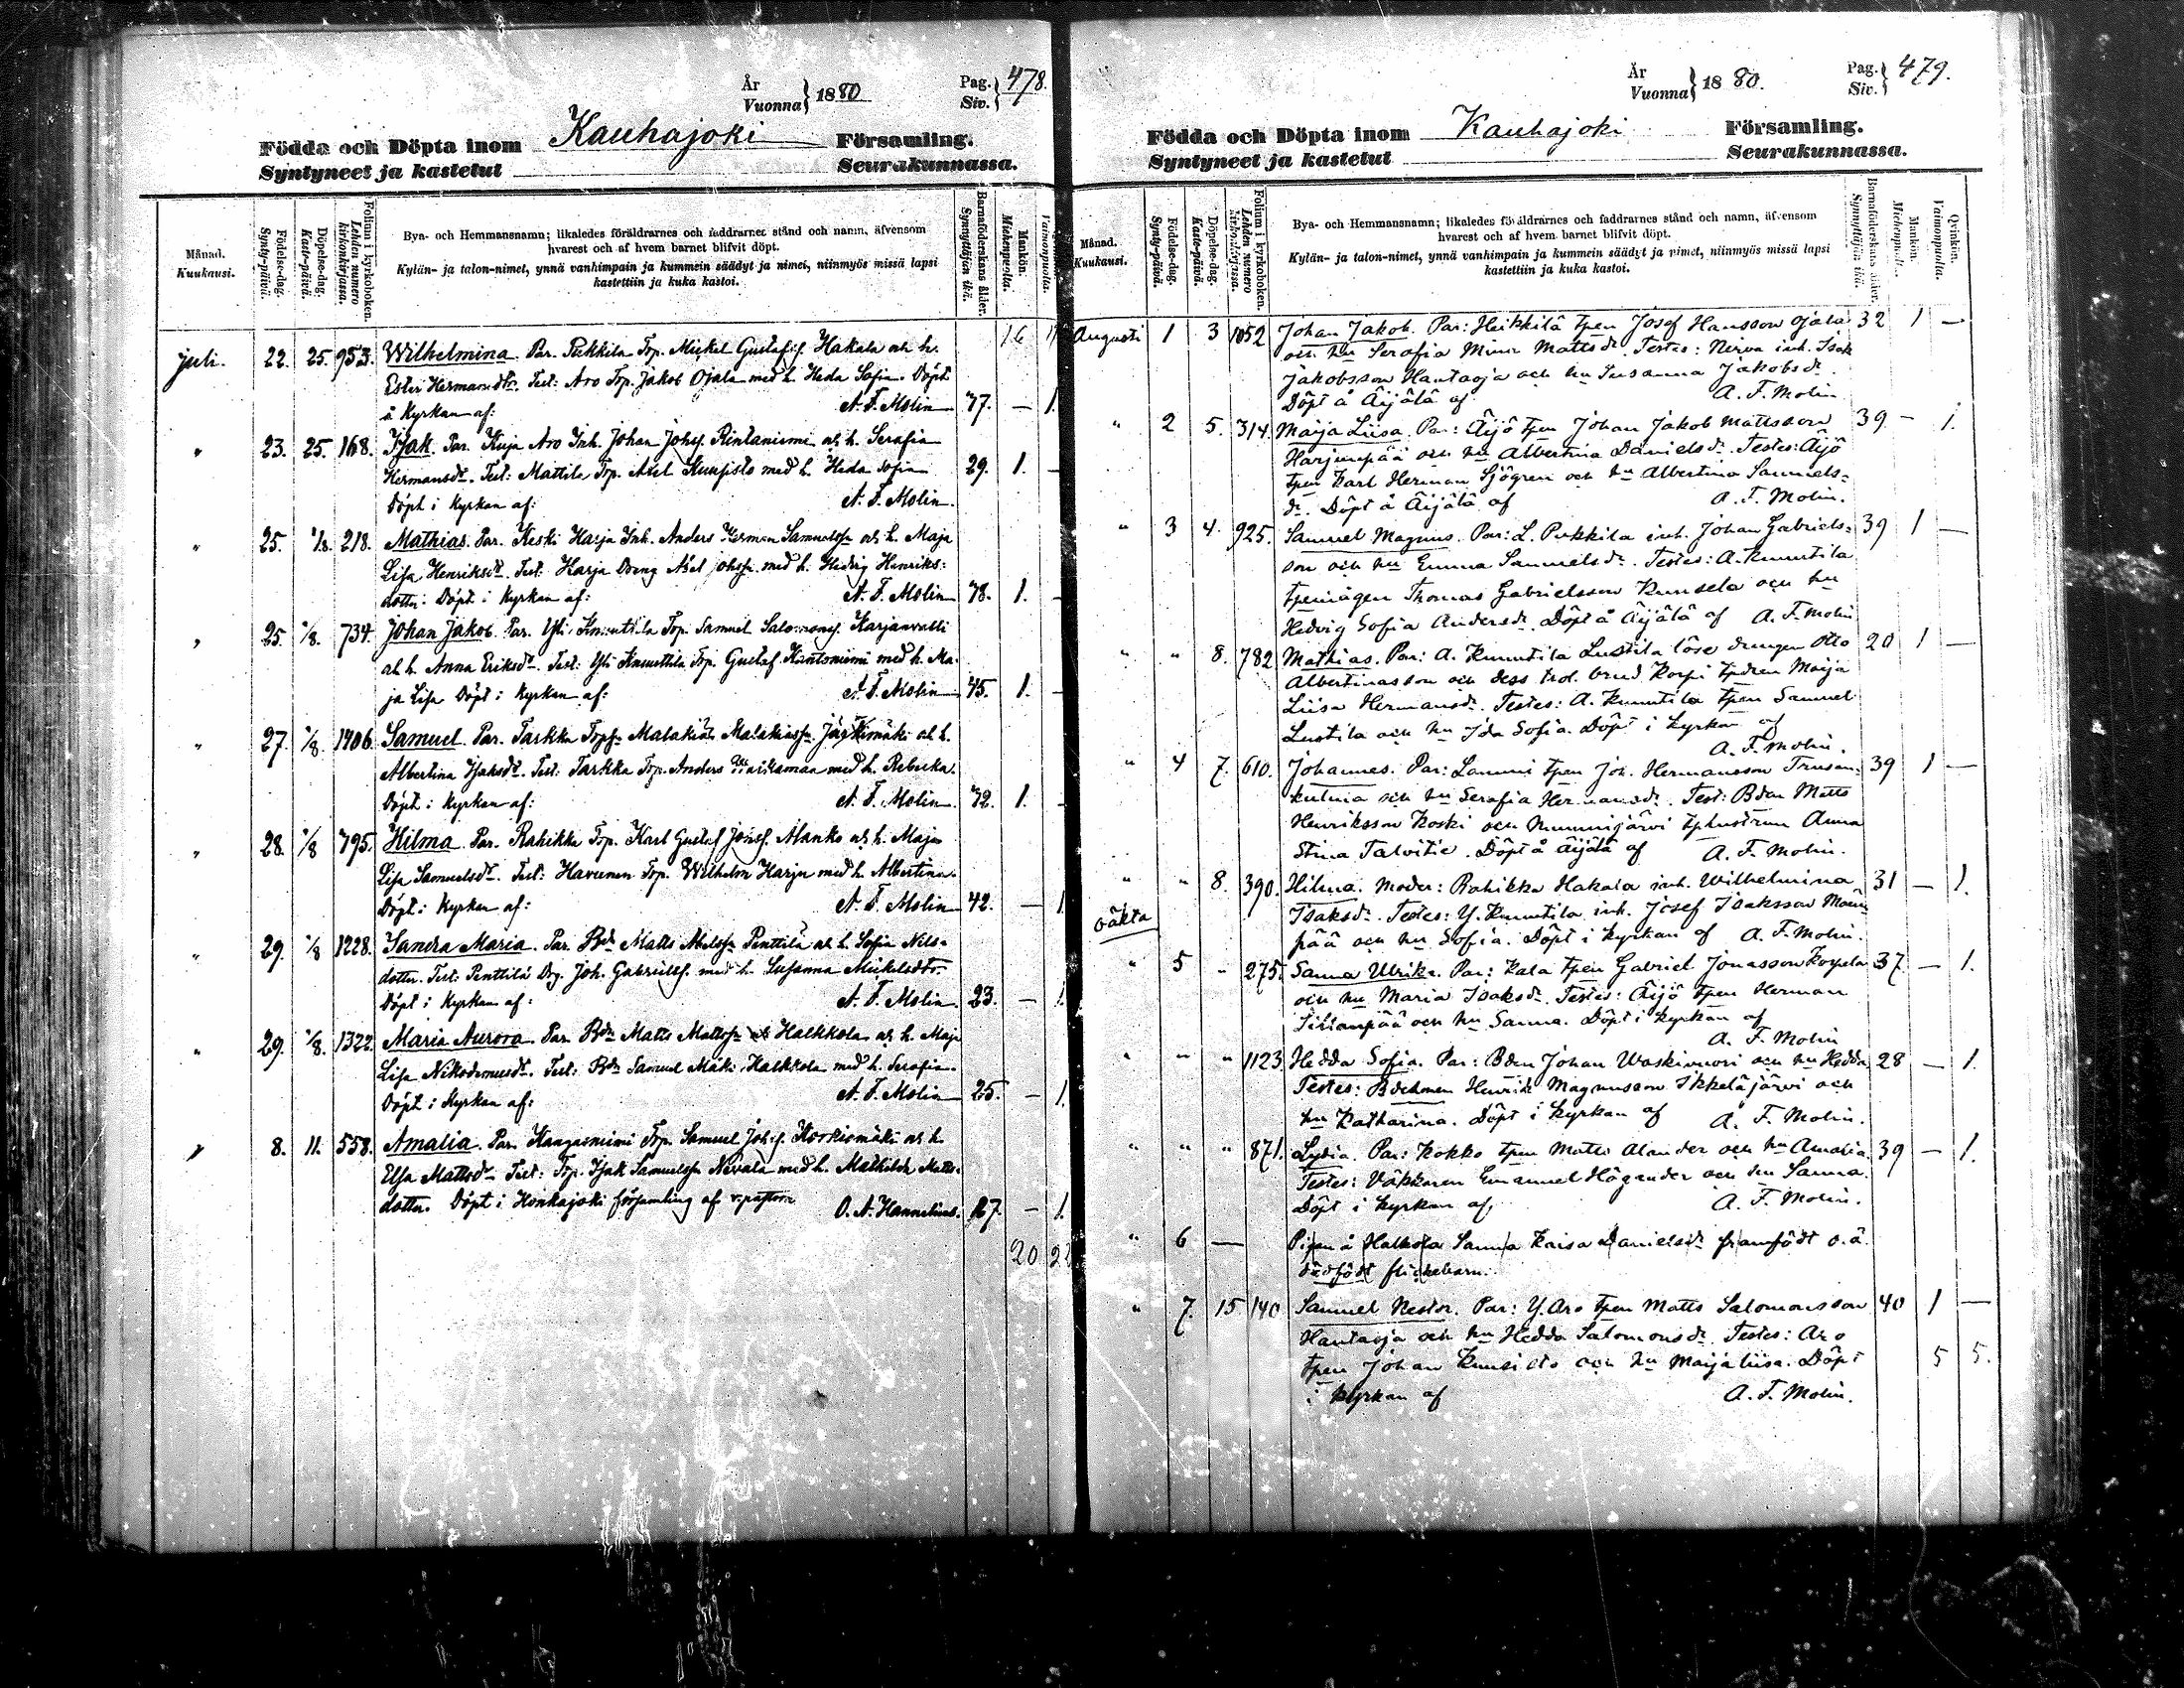 År
Vuonna } 1880
Pag.
Siv. } 478.
Födda och Döpta inom Kauhajoki Församling.
Syntyneet ja kastetut Seurakunnassa.
Månad.
Kuukausi.
Födelse-dag.
Synty-päivä.
Döpelse-dag.
Kaste-päivä.
Folium i kyrkoboken.
Lehden numero kirkonkirjassa.
Bya- och Hemmansnamn; likaledes föräldrarnes och faddrarnes stånd och namn, äfvensom
hvarest och af hvem barnet blifvit döpt.
Kylän- ja talon-nimet, ynnä vanhimpain ja kummein säädyt ja nimet, niinmyös missä lapsi
kastettiin ja kuka kastoi.
Barnaföderskans ålder.
Synnyttäjän ikä.
Mankön.
Miehenpuolta.
Vaimonpuolta.
16
juli. 22. 25. 953. Wilhelmina. Par. Pukkila Torp. Mickel Gustafsf. Hakala och h.
Ester Hermansdtr. Test: Aro Torp. Jakob Ojala med h. Heda Sofia. Döpt
i Kyrkan af: A. F. Molin 77. — 1.
" 23. 25. 168. Isak. Par. Kuja Aro Inh. Johan Johsf. Rintaniemi och h. Serafia
Hermansdr. Test: Mattila Torp. Axel Kuusisto med h. Heda Sofia 29. 1. —
Döpt i Kyrkan af: A. F. Molin.
" 25. 1/8. 218. Mathias. Par. Keski Harja Inh. Anders Herman Samuelsson och h. Maja
Lisa Henriksdr. Test: Harja Dreng Axel Johsson med h. Hedvig Henriks:
dotter. Döpt i Kyrkan af: A. F. Molin 78. 1. —
" 25. 1/8. 734. Johan Jakob. Par. Yli Knuuttila Torp. Samuel Salomonsf. Karjanvalli
och h. Anna Eriksdr. Test: Yli Knuuttila Torp. Gustaf Kantoniemi med h. Ma-
ja Lisa Döpt i Kyrkan af: A. F. Molin 75. 1. —
" 27. 1/8. 1406. Samuel. Par. Tarkka Malakias Malakiasson och h.
Albertina Isaksdr. Test: Tarkka Torp. Anders med h. Rebecka.
Döpt i Kyrkan af: A. F. Molin. 72. 1. —
" 28. 1/8 795. Hilma. Par. Rahikka Torp. Karl Gustaf Josefsf. Manko och h. Maja
Lisa Samuelsdr. Test: Havunen Torp. Wilhelm Harju med h. Albertina.
Döpt i Kyrkan af: A. F. Molin 42. — 1.
" 29. 1/8 1228. Sandra Maria. Par. Bdn Matts Penttilä och h. Sofia Nils-
dotter. Test: Penttilä Drg. Joh. Gabrielsf. med h. Susanna Mickelsdtr.
Döpt i Kyrkan af: A. F. Molin. 23. — 1.
" 29. 1/8. 1322. Maria Aurora. Par. Bdn Matts Mattsson Halkkola och h. Maja
Lisa Nikodemusdr. Test: Bdn Samuel Mäki Halkkola med h. Serafia.
Döpt i Kyrkan af: A. F. Molin 25. — 1.
" 8. 11. 558. Amalia. Par. Kangasniemi Torp. Samuel Johsf. Koskiomäki och h.
Elsa Mattsdr Test: Torp. Isak Samuelsson Nevala med h. Mathilda Matts-
dotter. Döpt i Honkajoki församling af v. pastorn O. A. Hannelius. 27. — 1.
20 2
År
Vuonna } 1880.
Pag.
Siv. } 479.
Födda och Döpta inom Kauhajoki Församling.
Syntyneet ja kastetut Seurakunnassa.
Månad.
Kuukausi.
Födelse-dag.
Synty-päivä.
Döpelse-dag.
Kaste-päivä.
Folium i kyrkoboken.
Lehden numero kirkonkirjassa.
Bya- och Hemmansnamn; likaledes föräldrarnes och faddrarnes stånd och namn, äfvensom
hvarest och af hvem barnet blifvit döpt.
Kylän- ja talon-nimet, ynnä vanhimpain ja kummein säädyt ja nimet, niinmyös missä lapsi
kastettiin ja kuka kastoi.
Barnaföderskans ålder.
Synnyttäjän ikä.
Mankön.
Miehenpuolta.
Qvinkön.
Vaimonpuolta.
Augusti 1 3 1052 Johan Jakob. Par: Heikkilä tpen Josef Hansson Ojala 32 1 —
och hu Serafia Mina Mattsdr. Testes: Nirva inh. Isak
Jakobsson Hautaoja och hu Susanna Jakobsdr.
Döpt å Äijälä af A. F. Molin
" 2 5. 314. Maija Liisa. Par: Äijö tpen Johan Jakob Mattsson 39 — 1.
Harjunpää och hu Albertina Danielsdr. Testes: Äijö
tpen Karl Herman Sjögren och hu Albertina Samuels-
dr. Döpt å Äijälä af A. F. Molin.
" 3 4. 925. Samuel Magnus. Par: L. Pukkila inh. Johan Gabriels- 39 1 —
son och hu Emma Samuelsdr. Testes: A. Knuutila
tpenägen Thomas Gabrielsson Kunsela och hu
Hedvig Sofia Andersdr. Döpt å Äijälä af A. F. Molin
" " 8. 782 Mathias. Par: A. Knuutila Lustila löse drengen Otto 20 1 —
Albertinasson och dess trol. brud Korpi Maija
Liisa Hermansdr. Testes: A. Knuutila tpen Samuel
Lustila och hu Ida Sofia. Döpt i kyrkan af
A. F. Molin.
" 4 7. 610. Johannes. Par: Lammi tpen Joh. Hermansson Trusan- 39 1 —
kulma och hu Serafia Hermansdr. Test: Bden Matts
Henriksson Koski och Nummijärvi tphustrun Anna
Stina Talvitie. Döpt å Äijälä af A. F. Molin.
" " 8. 390. Hilma. Moder: Rahikka Hakala inh. Wilhelmina 31 — 1.
oäkta
Isaksdr. Testes: Y. Knuutila inh. Josef Isaksson Mäen-
pää och hu Sofia. Döpt i kyrkan af A. F. Molin.
" 5 " 275. Sanna Ulrika. Par: Kala tpen Gabriel Jonasson Korpela 37 — 1.
och hu Maria Isaksdr. Testes: Äijö tpen Herman
Sillanpää och hu Sanna. Döpt i kyrkan af
A. F. Molin
" " " 1123 Hedda Sofia. Par: Bden Johan Waskivuori och hu Hedda 28 — 1.
Testes: Bdehmen Henrik Magnusson Ikkeläjärvi och
hu Katharina. Döpt i kyrkan af A. F. Molin.
" " " 871. Lydia. Par: Kokko tpen Matts Alander och hu Amalia. 39 — 1.
Testes: Väkkaren Emanuel Högander och hu Sanna.
Döpt i kyrkan af A. F. Molin.
" 6 — Pigan å Halkola Sanna Kaisa Danielsdr framfödt o. ä.
dödfödt flickebarn.
" 7. 15 140 Samuel Nestor. Par: Y. Aro tpen Matts Salomonsson 40 1 —
Hautaoja och hu Hedda Salomonsdr. Testes: Aro
tpen Johan Kuusisto och hu Maija Liisa. Döpt 5 5.
i kyrkan af A. F. Molin.